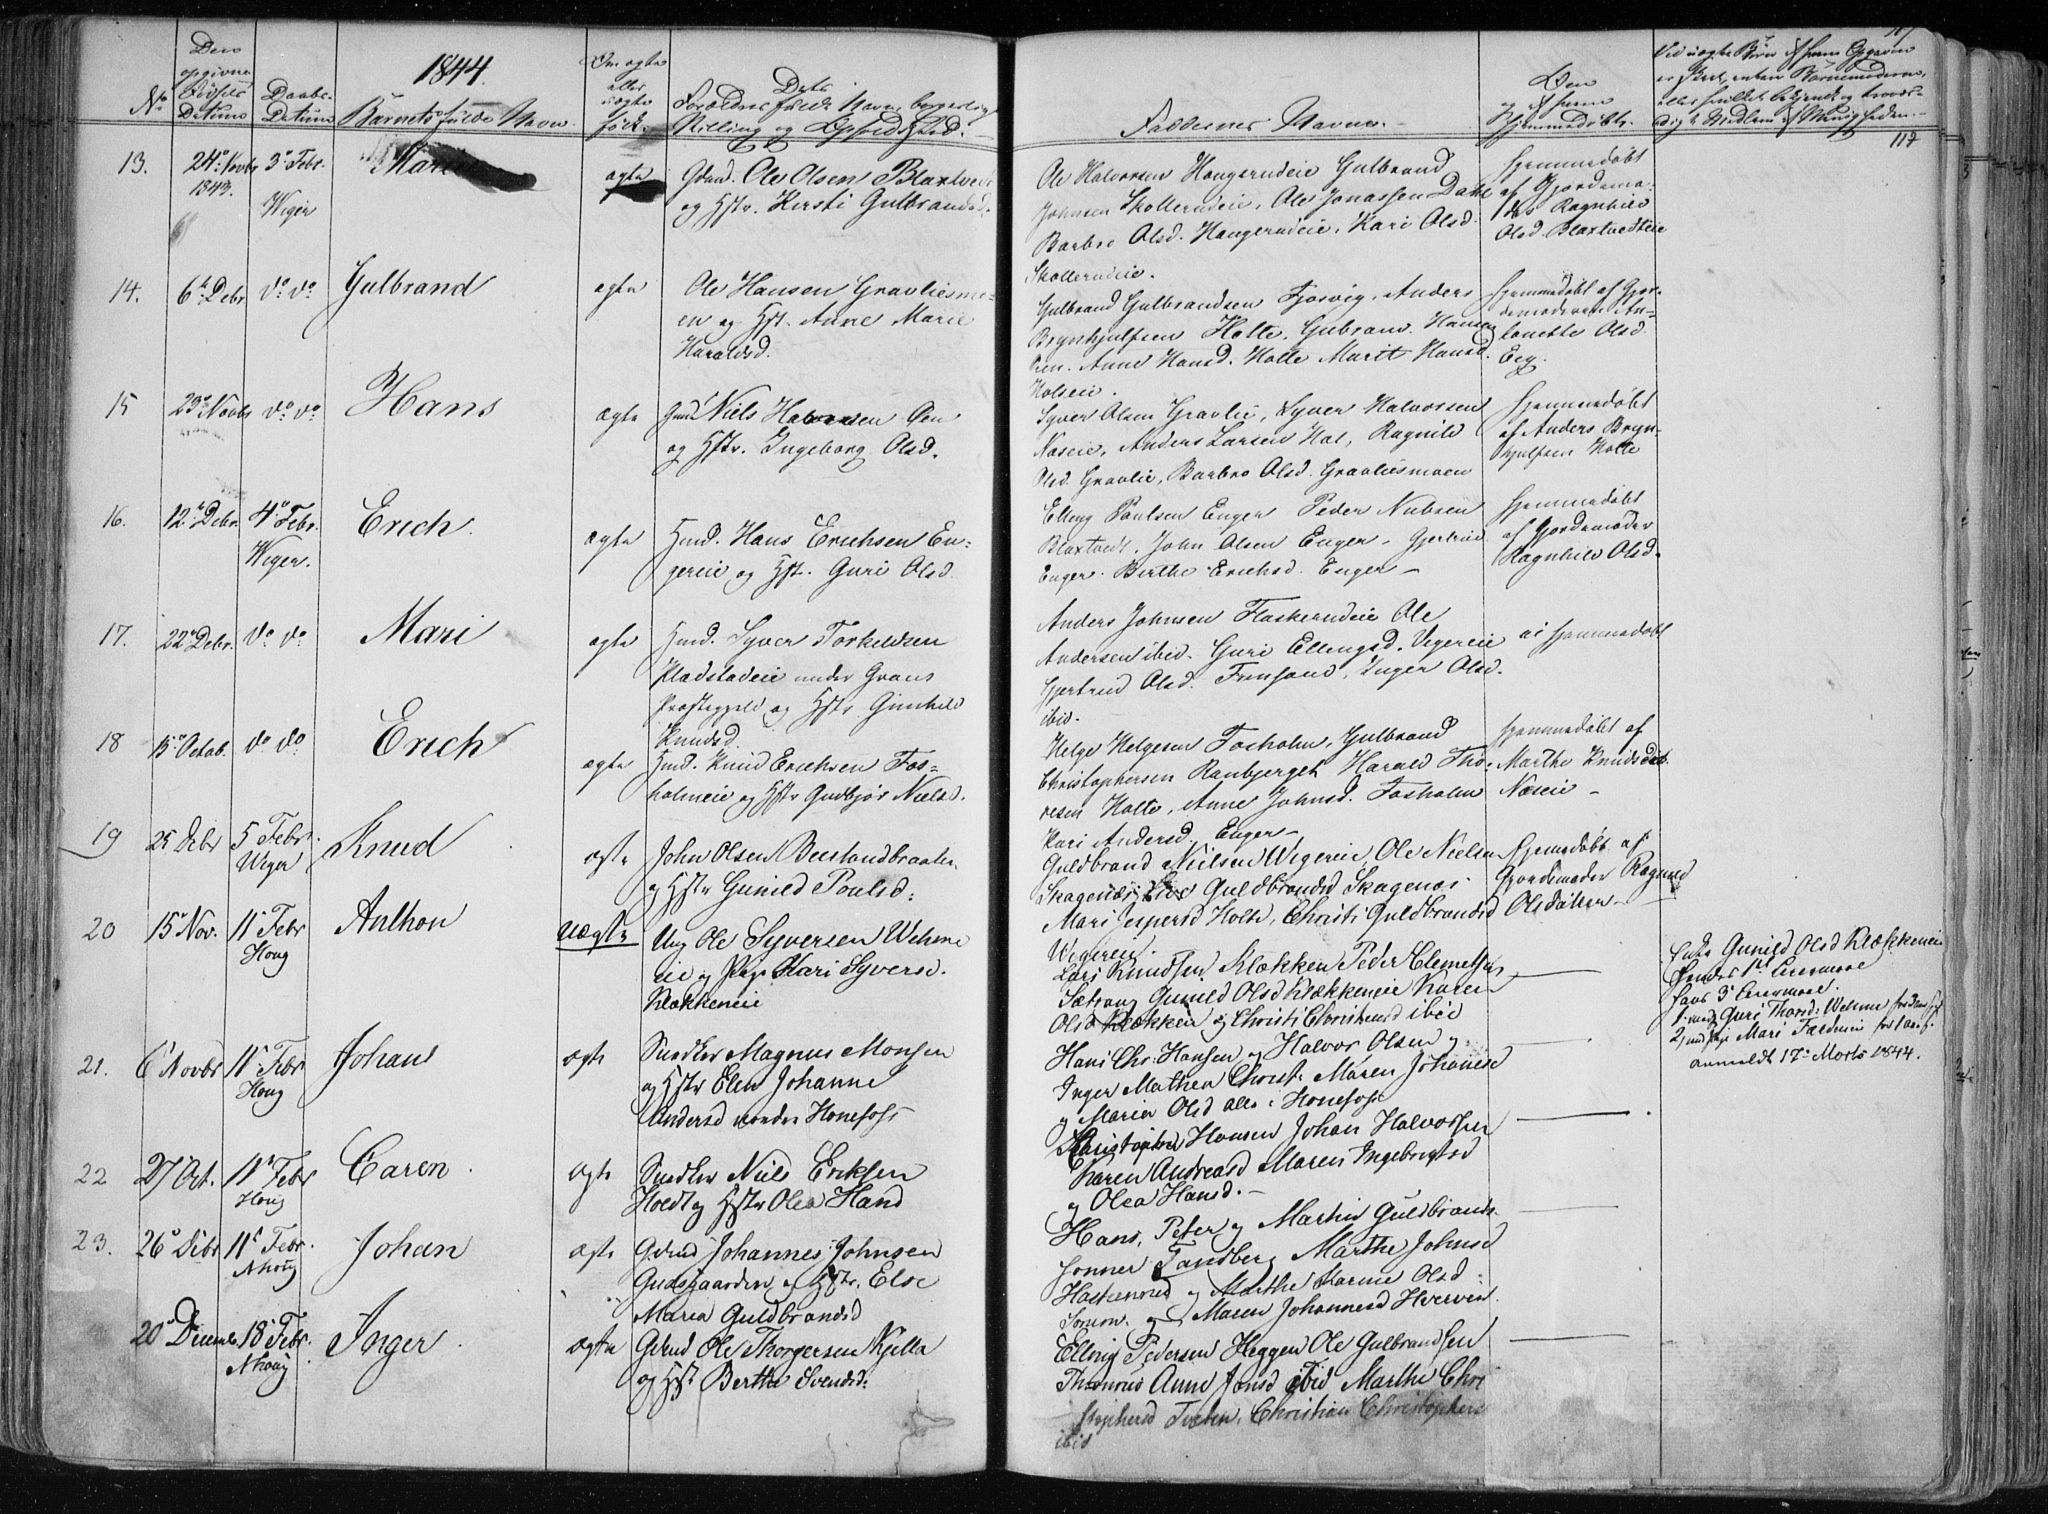 117
1844.
No
Dens opgivne Fødsels Datum
Daabs Datum
Barnets fulde Navn
Om ægte eller uægte født.
Forældres fulde Navn, borgerlige Stilling og Opholdssted.
Faddernes Navne.
Hjemmedøbte.
13.
24de Novbr 1843.
3de Febr. Weger
Mari
ægte
Gdmd. Ole Olsen Blaxtvedt
og Hstr. Kirsti Gulbrandsd.
Ole Halvorsen Haugerudeie Gulbrand
Johnsen Skollerudeie, Ole Jonassen Dahl
Barbro Olsd. Haugerudeie, Kari Olsd.
Skollerudeie.
Hjemmedøbt
af Gjordemo-
der Ragnhild
Olsd. Blaxtvedteie
14.
6te Debr.
do do
Gulbrand
ægte
Ole Hansen Gravliesmo-
en og Hst. Anne Marie
Haraldsd.
Gulbrand Gulbrandsen Tjosvig, Anders
Brynhjulfsen Holte, Gulbrand Hansen
Øen. Anne Hansd. Holte Marit Hansd.
Holseie.
Hjemmedøbt af Gjor-
demoderen An-
tonette Olsd.
Eeg.
15
23de Novbr
do do
Hans
ægte
Gmd Niels Halvorsen Øen
og Hstr. Ingeborg Olsd.
Syver Olsen Gravlie, Syver Halvorsen
Næseie, Anders Larsen Hol, Ragnild
Olsd. Gravlie, Barbro Olsd. Gravliesmoen
Hjemmedøbt
af Anders Bryn-
hjulfsen Holte
16.
12te Debr.
4de Febr. Weger.
Erich
ægte
Hmd. Hans Erichsen En-
gereie og Hst. Guri Olsd.
Elling Paulsen Enger Peder Nubsen
Blaxtvedt, John Olsen Enger - Gjertrud
Enger. Birthe Erichsd. Enger -
Hjemmedøbt
af Gjordemoder
Ragnhild Olsd.
17.
22de Debr.
do do
Mari
ægte
Hmd. Syver Torkeldsen
Pladstadeie under Grans
Præstegjeld og Hstr Gunhild
Knudsd.
Anders Johnsen Flaskerudeie Ole
Andersen ibid. Guri Ellingsd. Vegereie
Gjertrud Olsd. , Inger Olsd.
ibid.
ei Hjemmedøbt
18
15de Octob.
do do
Erich
ægte
Hmd. Knud Erichsen Fos-
holmeie og Hstr Gudbjør Nielsd.
Helge Helgesen Fosholm, Gulbrand
Christophersen Ranbjerget Harald Tho-
resen Holte, Anne Johnsd. Fosholm
Kari Andersd. Enger -
Hjemmedøbt af
Marthe Knudsdat.
Næseie -
19
25 Debr
5 Febr Weger
Knud
ægte
John Olsen Buttandbraaten
og Hstr Gunild Poulsd:
Guldbrand Nielsen Wegereie, Ole Nielsen
Skagenæs, Live Guldbrandsd Skagenæs
Mari Jespersd Holte, Christi Guldbrandsd
Wegereie.
Hjemedøbt af
Gjordemoder Ragnild
Olsdatter -
20
15de Nov.
11te Febr Houg
Anthon
uægte
Ung Ole Syversen Wehme
eie og Pige Kari Syversd.
Klækkeneie
Lars Knudsen Klækken Peder Clemetsen
Sætrang Gunild Olsd Klækkeneie Karen
Olsd Klækken og Christi Christensd ibid
Enke Gunild Olsd Klækkeneie
Hendes 1st Leiermaal
hans 3de Leiermaal.
1. med Guri Thorsd. Wehme
2, med Pige Mari
anmeldt 17de Marts 1844.
21.
6te Novbr
11te Febr Houg
Johans
ægte
Snedker Magnus Monsen
og Hstr Elen Johanne
Andersd nordre Honefoss
Hans Chr: Hansen og Halvor Olsen og
Inger Mathea Christ. Maren Johansd
og Maria Olsd alle i Honefoss
22
27 Oct.
11te Febr Houg
Caren
ægte
Snedker Niels Eriksen
Hoedt og Hstr Olea Hansd
Christopher Hansen Johan Halvorsen
Karen Andreasd Maren Ingebrigtsd
og Olea Hansd.
23.
26de Debr
11te Febr. Nhoug
Johan
ægte
Gdmd Johannes Johnsen
Gudsgaarden og Hstr. Else
Maria Guldbrandsd
Hans, Peter og Martin Guldbrands-
sønner Tandberg Marthe Johnsd
og Marthe Marine Olsd
og Maren Johannesd Hverven
20de December
18de Febr. Nhoug
Inger
ægte
Gdmd Ole Thorgersen Kjella
og Hst Berthe Svendsd:
Elling Pedersen Heggen Ole Gulbrandsen
Anne Jonsd ibid Marthe Chri
stophersd Tveten, Christian Christophers
ibid